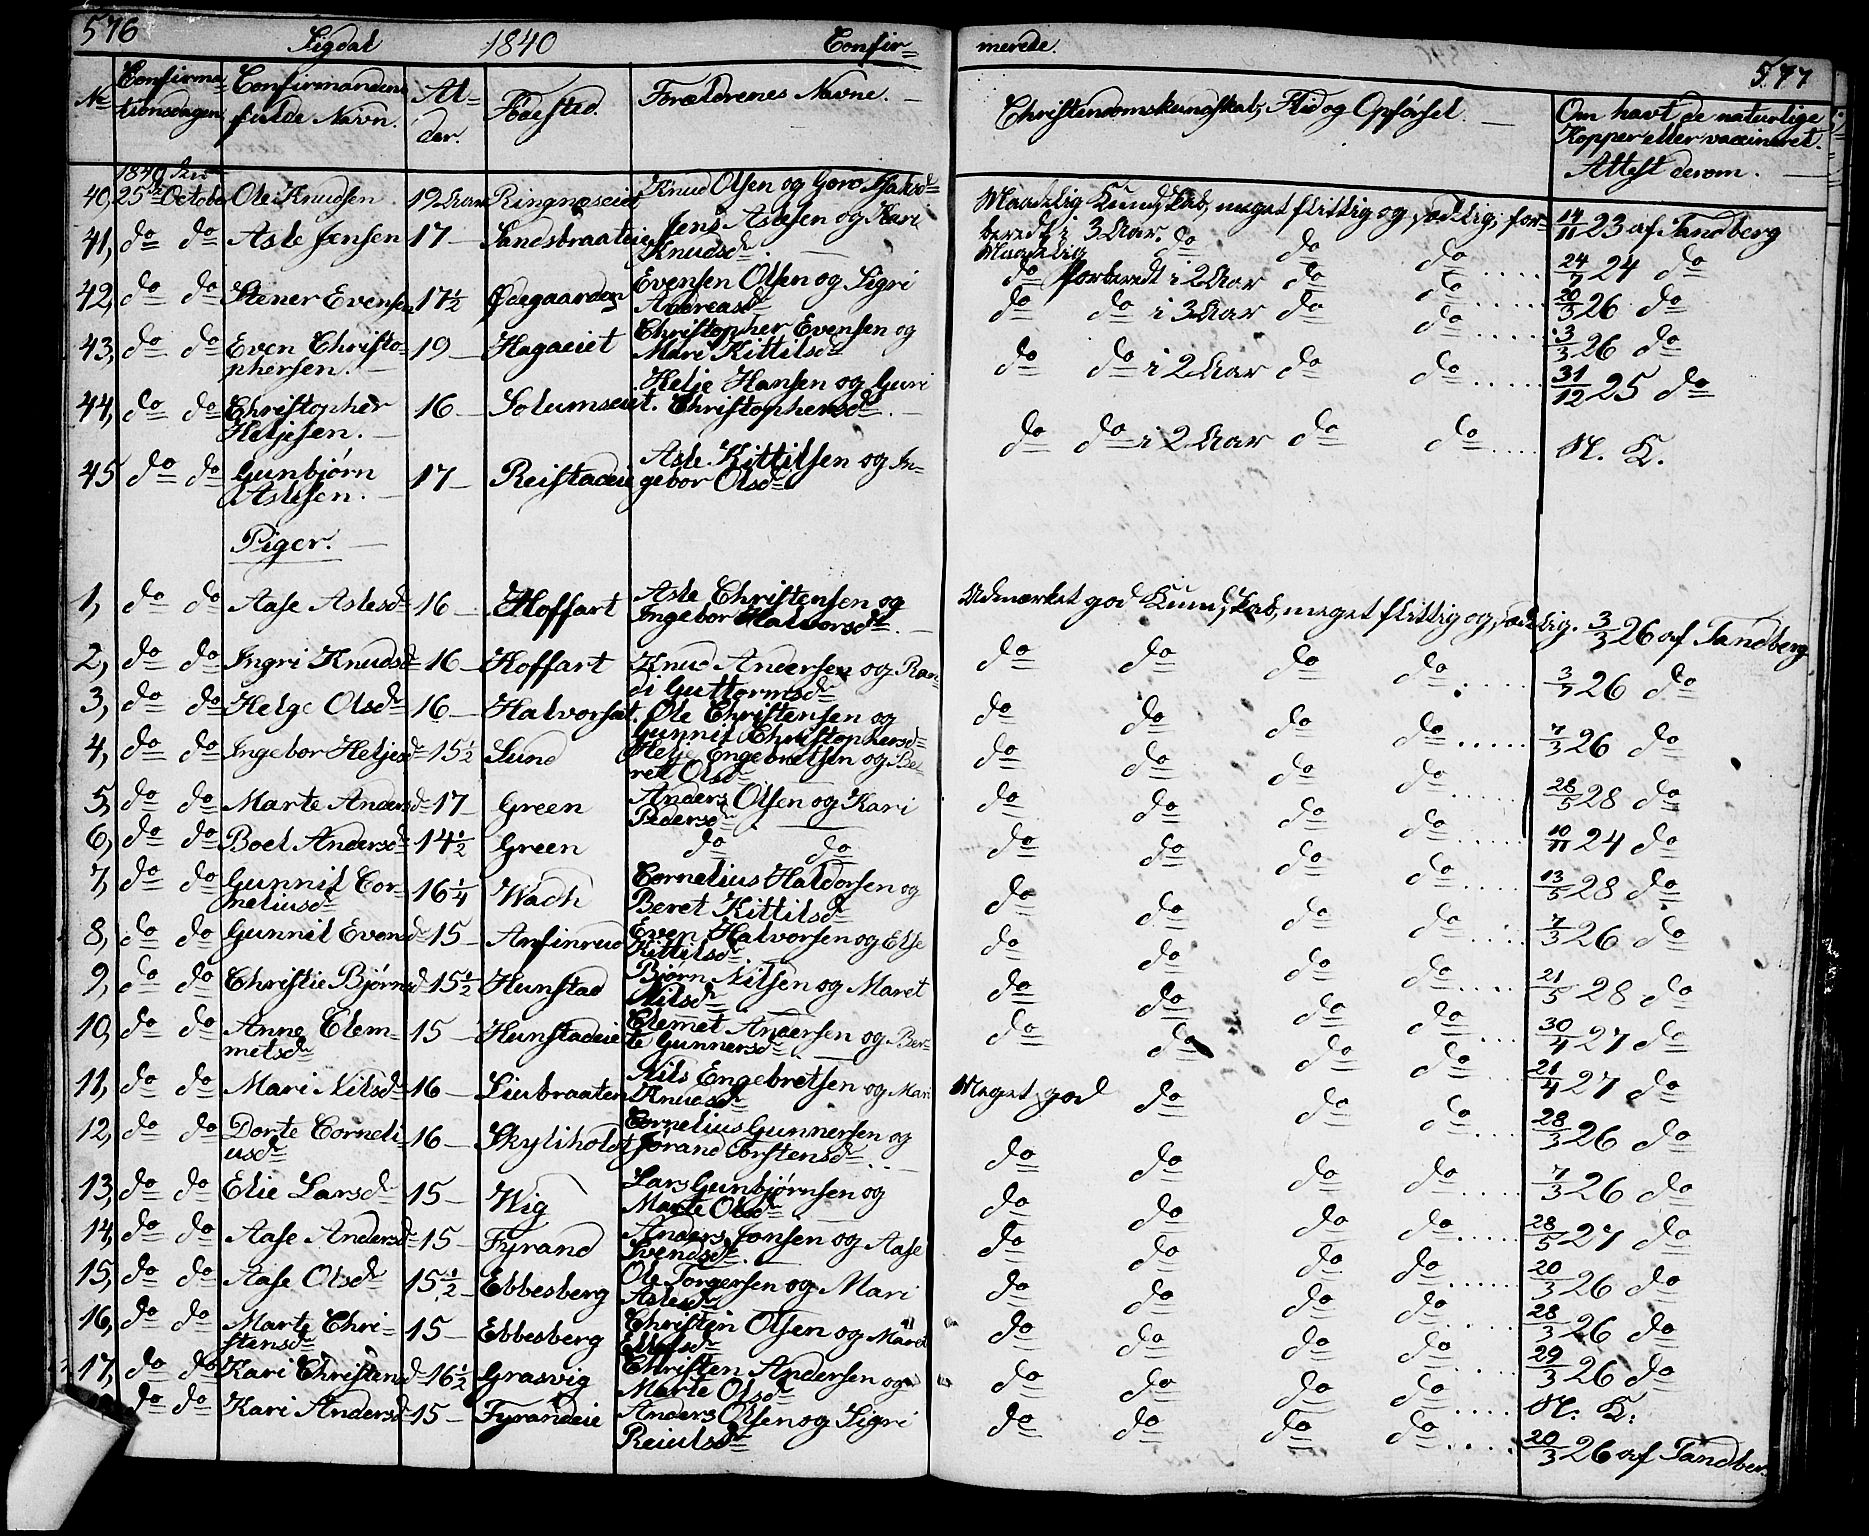 576 Sigdal 1840 Confir=
merede. 577
No Confirma= tionsdagen Confirmandens fulde Navn. Al= der. Fødested. Forældrenes Navne.
Christendomskundskab, Flid og Opførsel. Om havt de naturlige Kopper eller vaccineret. Attest derom.
1840 den
40, 25de October Ole Knudsen 19 Aar Ringnæseiet Knud Olsen og Goro Halvd
Maadelig Kundskab, meget flittig og sædelig, for= beredt i 3 Aar. 14/11 23 af Tandberg
41, do do Asle Jensen 17 Sandsbraateie Jens Aslesen og Kari Knudsd
Maadelig do do do 24/7 24 do
42, do do Stener Evensen 17½ Ødegaarden Evensen Olsen og Sigri Andreasd
do forberedt i 2 Aar do do 20/3 26 do
43, do do Even Christo= phersen. 19 Hagaeiet Christopher Evensen og Mari Kittilsd
do do i 3 Aar do do 3/3 26 do
44, do do Christopher Heljesen. 16 Solumseiet. Helje Hansen og Guri Christophersd.
do do i 2 Aar do do 31/12 25 do
45 do do Gunbjørn Aslesen. 17 Reistadeie Asle Kittilsen og In= gebor Olsd
do do i 2 Aar do do N. K.
Piger.
1, do do Aase Aslesd 16 Hoffart Asle Christensen og Ingebor Halvorsd.
Udmærket god Kundskab, meget flittig og sædelig. 3/3 26 af Tandberg
2, do do Ingri Knudsd 16 Hoffart Knud Andersen og Ran= di Guttormsd
do do do do 3/3 26 do
3, do do Helge Olsd 16 Halvorset. Ole Christensen og Gunnil Christophersd
do do do do 7/3 26 do
4, do do Ingebor Heljesd 15½ Lund Helje Engebretsen og Be= ret Olsd
do do do do 28/5 28 do
5, do do Marte Andersd 17 Green Anders Olsen og Kari Pedersd
do do do do 10/11 24 do
6, do do Boel Andersd 14½ Green do do
do do do do 13/5 28 do
7, do do Gunnil Cor= neliusd 16¼ Wach Cornelius Haldorsen og Beret Kittilsd
do do do do 7/3 26 do
8, do do Gunnil Evensd 15 Anfinrud Even Halvorsen og Else Kittilsd
do do do do 21/5 28 do
9, do do Christie Bjørnsd 15½ Hunstad Bjørn Nilsen og Maret Nilsd
do do do do 30/4 27 do
10, do do Anne Clem= metsd 15 Hunstadeie Clemet Andersen og Ber= te Gunnersd
do do do do 21/4 27 do
11, do do Mari Nilsd 16 Liebraaten Nils Engebretsen og Mari Knudsd
Meget god do do do 28/3 26 do
12, do do Dorte Corneli= usd 16 Skyliholdt Cornelius Gunnersen og Jørand Torstensd.
do do do do 7/3 26 do
13, do do Elie Larsd 15 Wig Lars Gunbjørnsen og Marte Olsd
do do do do 28/5 27 do
14, do do Aase Andersd 15 Fyrand Anders Jonsen og Aase Svendsd.
do do do do 20/3 26 do
15, do do Aase Olsd 15½ Ebbesberg Ole Torgersen og Mari Aslesd
do do do do 28/3 26 do
16, do do Marte Chri= stensd 15 Ebbesberg Christen Olsen og Maret Ellefsd
do do do do 29/3 26 do
17, do do Kari Christensd 16½ Grasvig Christen Andersen og Marte Olsd
do do do do N. K.
do do Kari Andersd 15 Fyrandeie Anders Olsen og Sigri Reiulsd
do do do do 20/3 26 af Tandber